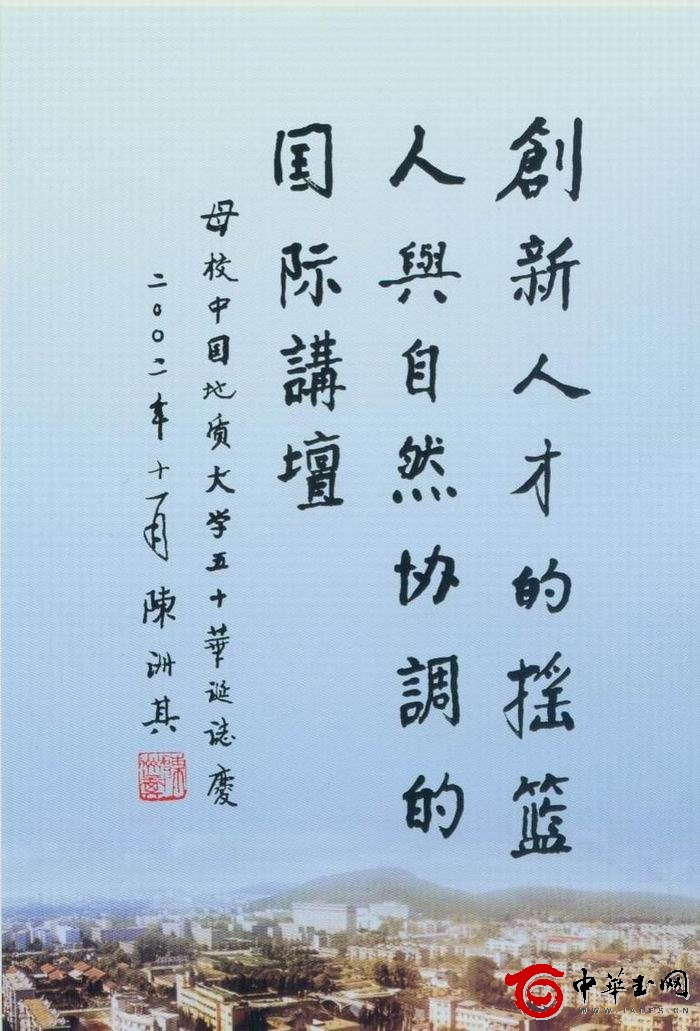 創新人才的摇籃
人與自然协調的
国际講壇
母校中国地质大学五十華誕誌慶
二〇〇二年十一月 陳洲其
中華玉网